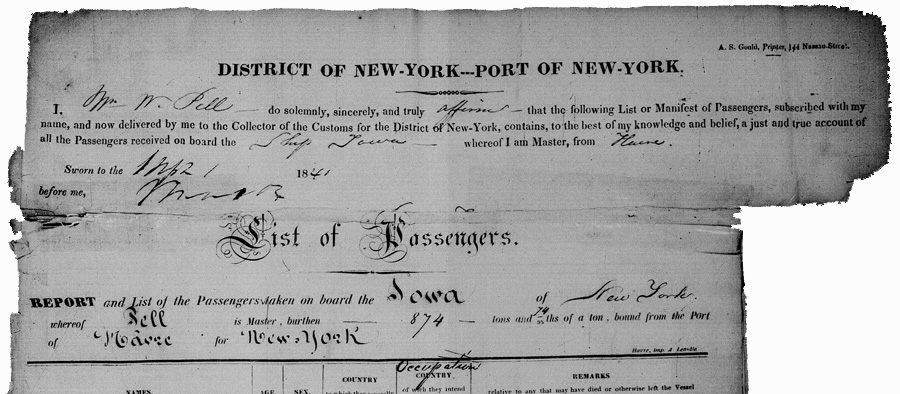 A. S. Gould, Printer, 144 Nassau-Street.
DISTRICT OF NEW-YORK---PORT OF NEW-YORK.
I, Wm W. Pell do solemnly, sincerely, and truly affirm that the following List or Manifest of Passengers, subscribed with my
name, and now delivered by me to the Collector of the Customs for the District of New-York, contains, to the best of my knowledge and belief, a just and true account of
all the Passengers received on board the Ship Iowa whereof I am Master, from Havre.
Sworn to the 1841
before me,
List of Passengers.
REPORT and List of the Passengers taken on board the Iowa of New York.
whereof Pell is Master, burthen 874 tons and 79/95ths of a ton, bound from the Port
of Havre for New-York
Havre, imp.
Occupation
NAMES AGE SEX. COUNTRY COUNTRY REMARKS
of which they intend relative to any that may have died or otherwise left the Vessel